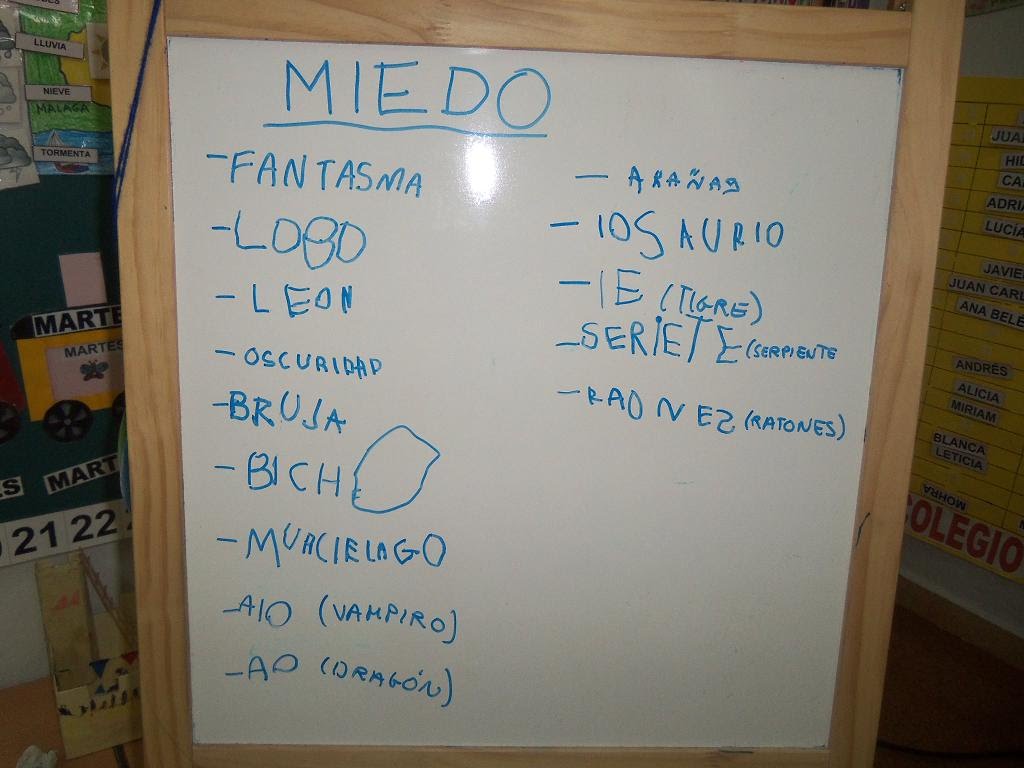 MIEDO
-FANTASMA
-LOBO
-LEON
-OSCURIDAD
-BRUJA
-BICHO
-MURCIELAGO
-AIO (VAMPIRO)
-AO (DRAGÓN)
- ARAÑAS
- IOSAURIO
- IE (TIGRE)
-SERIETE (SERPIENTE
-RAONEZ (RATONES)
LLUVIA
NIEVE
MALAGA
TORMENTA
MARTE
MARTES
MART
21 22
JUA
HI
CA
ADRI
LUCÍA
JAVIE
JUAN CARL
ANA BELÉ
ANDRÉS
ALICIA
MIRIAM
BLANCA
LETICIA
MOHRA
COLEGIO